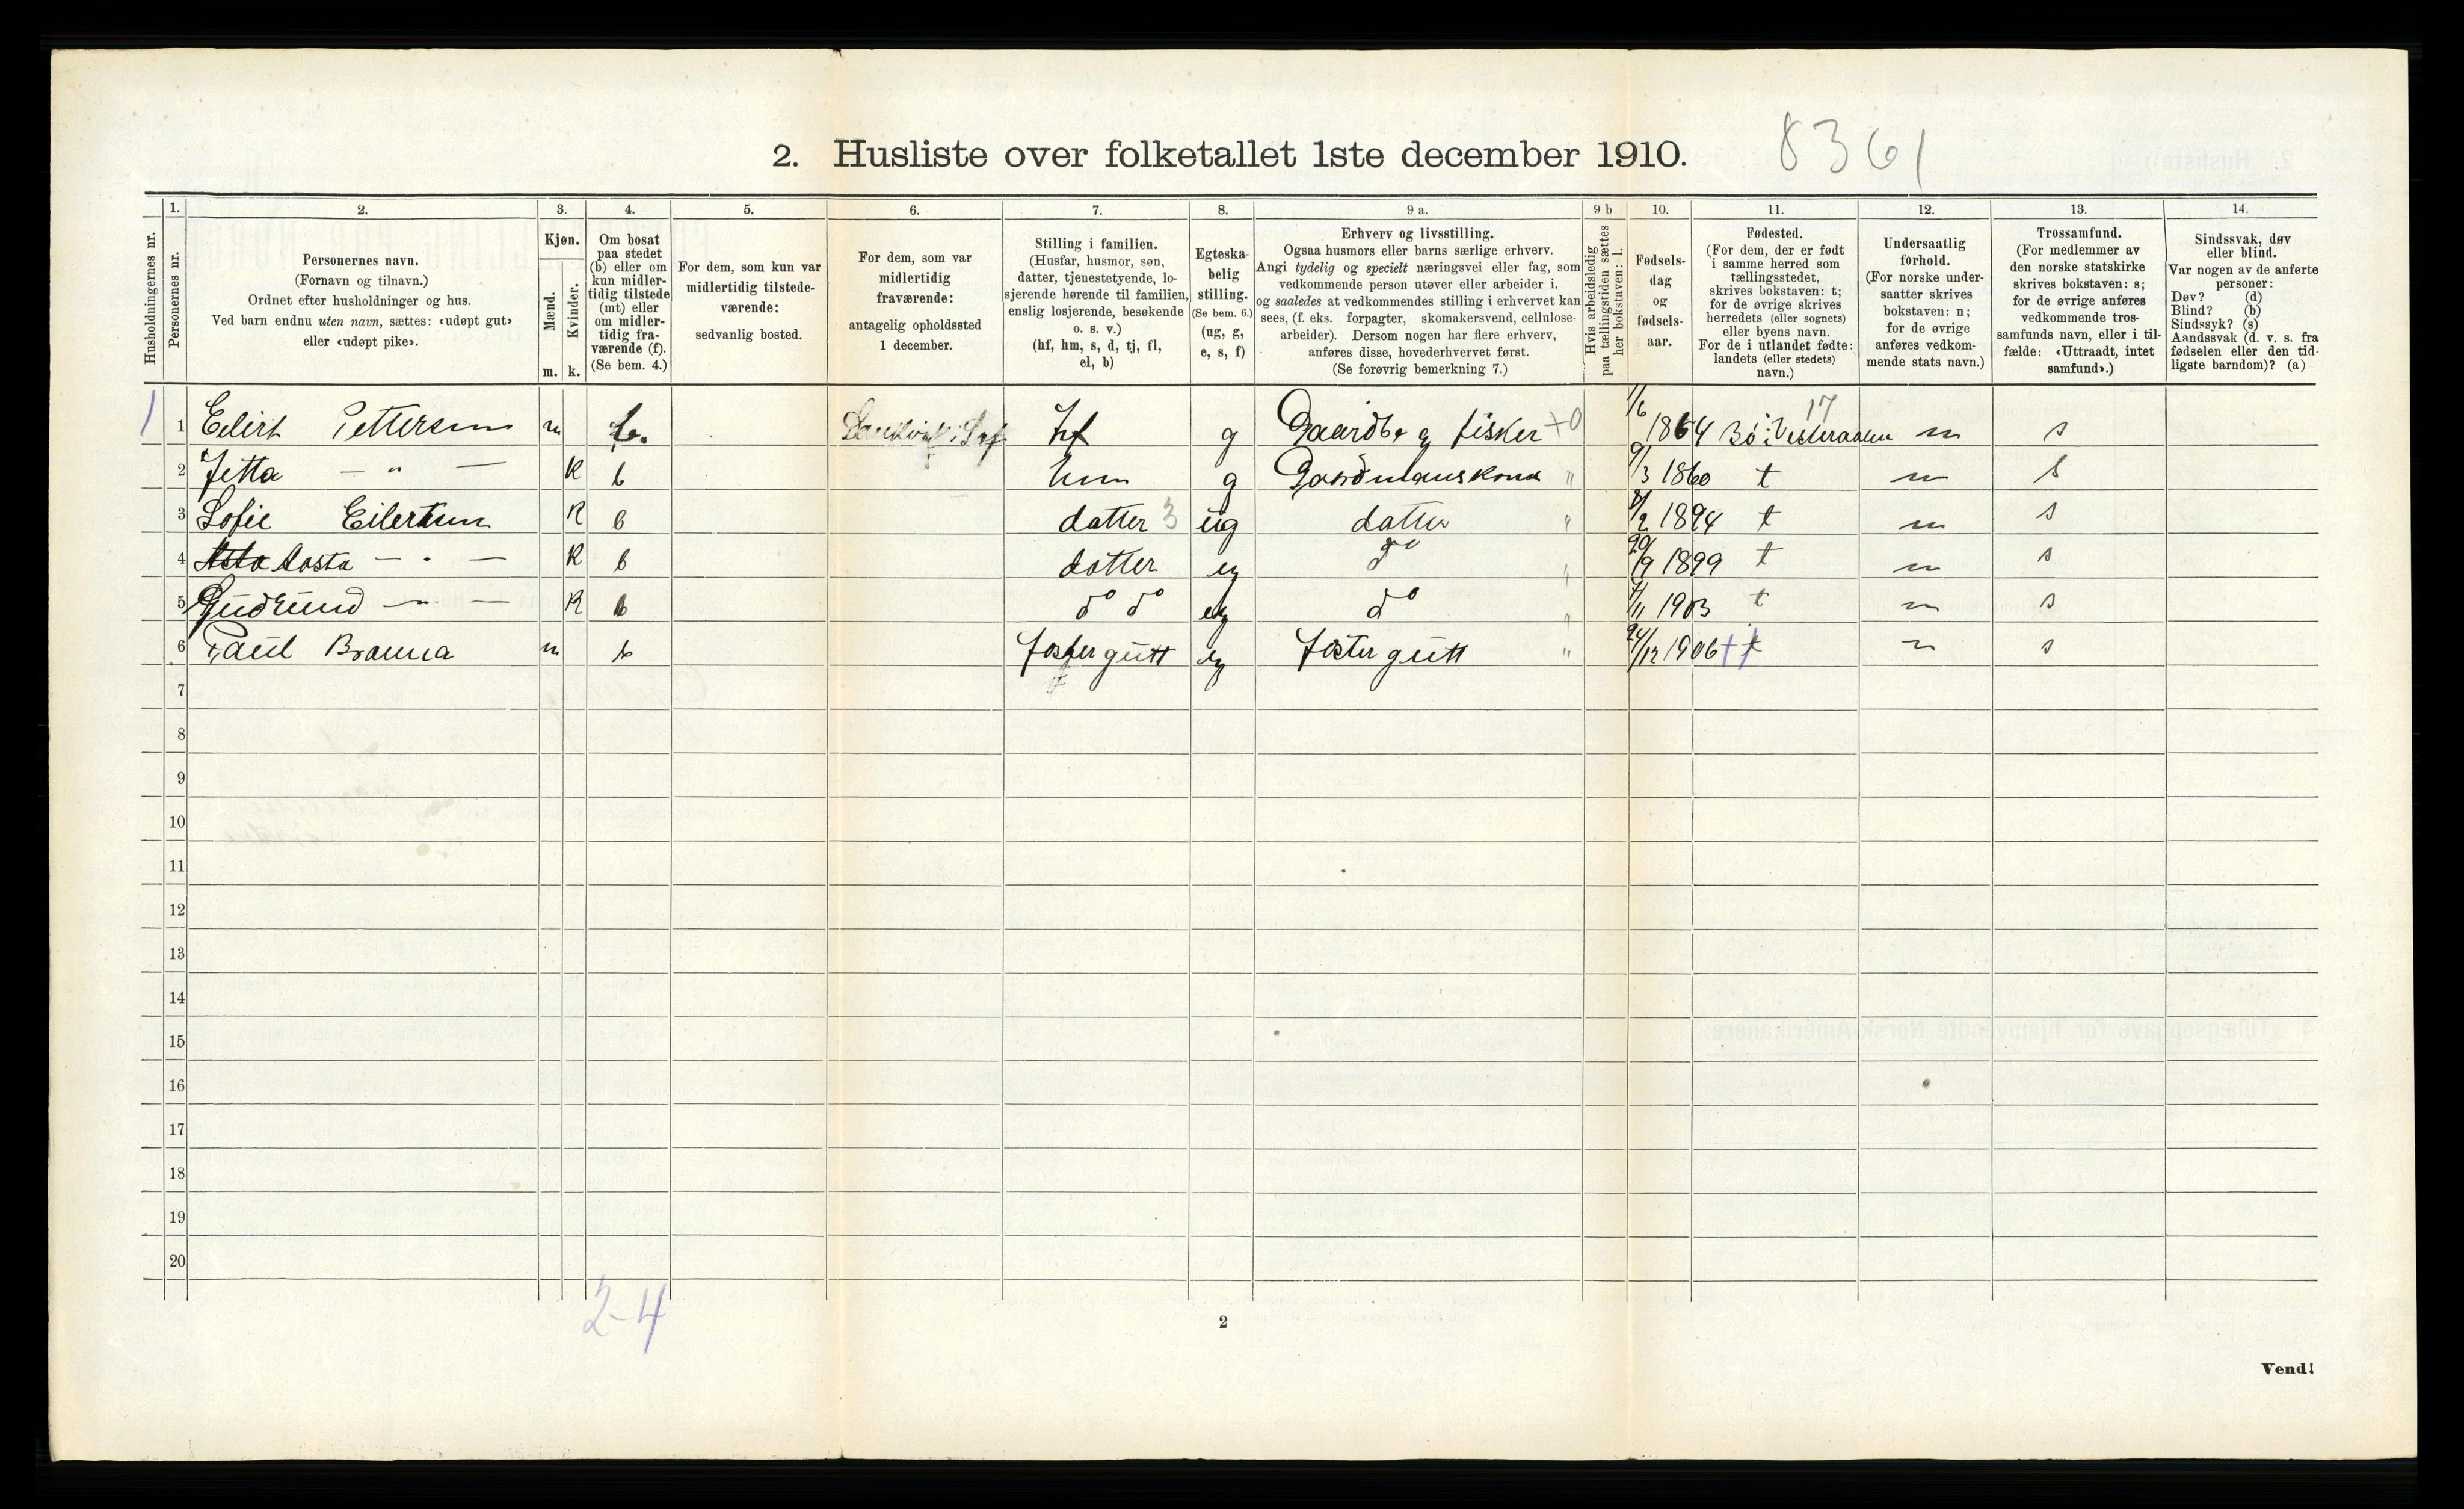 2. Husliste over folketallet 1ste december 1910. 8361
Husholdningernes nr.
1. Personernes nr.
2. Personernes navn.
(Fornavn og tilnavn.)
Ordnet efter husholdninger og hus.
Ved barn endnu uten navn, sættes: «udøpt gut»
eller «udøpt pike».
3. Kjøn.
Mænd. m.
Kvinder. k.
4. Om bosat
paa stedet
(b) eller om
kun midler-
tidig tilstede
(mt) eller
om midler-
tidig fra-
værende (f).
(Se bem. 4.)
5. For dem, som kun var
midlertidig tilstede-
værende:
sedvanlig bosted.
6. For dem, som var
midlertidig
fraværende:
antagelig opholdssted
1 december.
7. Stilling i familien.
(Husfar, husmor, søn,
datter, tjenestetyende, lo-
sjerende hørende til familien,
enslig losjerende, besøkende
o. s. v.)
(hf, hm, s, d, tj, fl,
el, b)
8. Egteska-
belig
stilling.
(Se bem. 6.)
(ug, g,
e, s, f)
9 a. Erhverv og livsstilling.
Ogsaa husmors eller barns særlige erhverv.
Angi tydelig og specielt næringsvei eller fag, som
vedkommende person utøver eller arbeider i,
og saaledes at vedkommendes stilling i erhvervet kan
sees, (f. eks. forpagter, skomakersvend, cellulose-
arbeider). Dersom nogen har flere erhverv,
anføres disse, hovederhvervet først.
(Se forøvrig bemerkning 7.)
9 b Hvis arbeidsledig
paa tællingstiden sættes
her bokstaven: l.
10. Fødsels-
dag
og
fødsels-
aar.
11. Fødested.
(For dem, der er født
i samme herred som
tællingsstedet,
skrives bokstaven: t;
for de øvrige skrives
herredets (eller sognets)
eller byens navn.
For de i utlandet fødte:
landets (eller stedets)
navn.)
12. Undersaatlig
forhold.
(For norske under-
saatter skrives
bokstaven: n;
for de øvrige
anføres vedkom-
mende stats navn.)
13. Trossamfund.
(For medlemmer av
den norske statskirke
skrives bokstaven: s;
for de øvrige anføres
vedkommende tros-
samfunds navn, eller i til-
fælde: «Uttraadt, intet
samfund».)
14. Sindssvak, døv
eller blind.
Var nogen av de anførte
personer:
Døv? (d)
Blind? (b)
Sindssyk? (s)
Aandssvak (d. v. s. fra
fødselen eller den tid-
ligste barndom)? (a)
1 1 Eilert Pettersen m b. hf g Gaardbr og fisker +0 1/6 1864 Bø i Vesteraalen 17 n s
2 Jetta — " — K b hm g Gardmanskona " 9/3 1860 t n s
3 Sofie Eilertsen K b datter 3 ug datter " 8/2 1894 t n s
4 Asta Aasta — " — K b datter ug do " 20/9 1899 t n s
5 Gudrund — " — K b do do ug do " 7/11 1903 t n s
6 Paul Brauna m b foster gutt ug foster gutt " 24/12 1906 t n s
7
8
9
10
11
12
13
14
15
16
17
18
19
20
2-4
2
Vend!